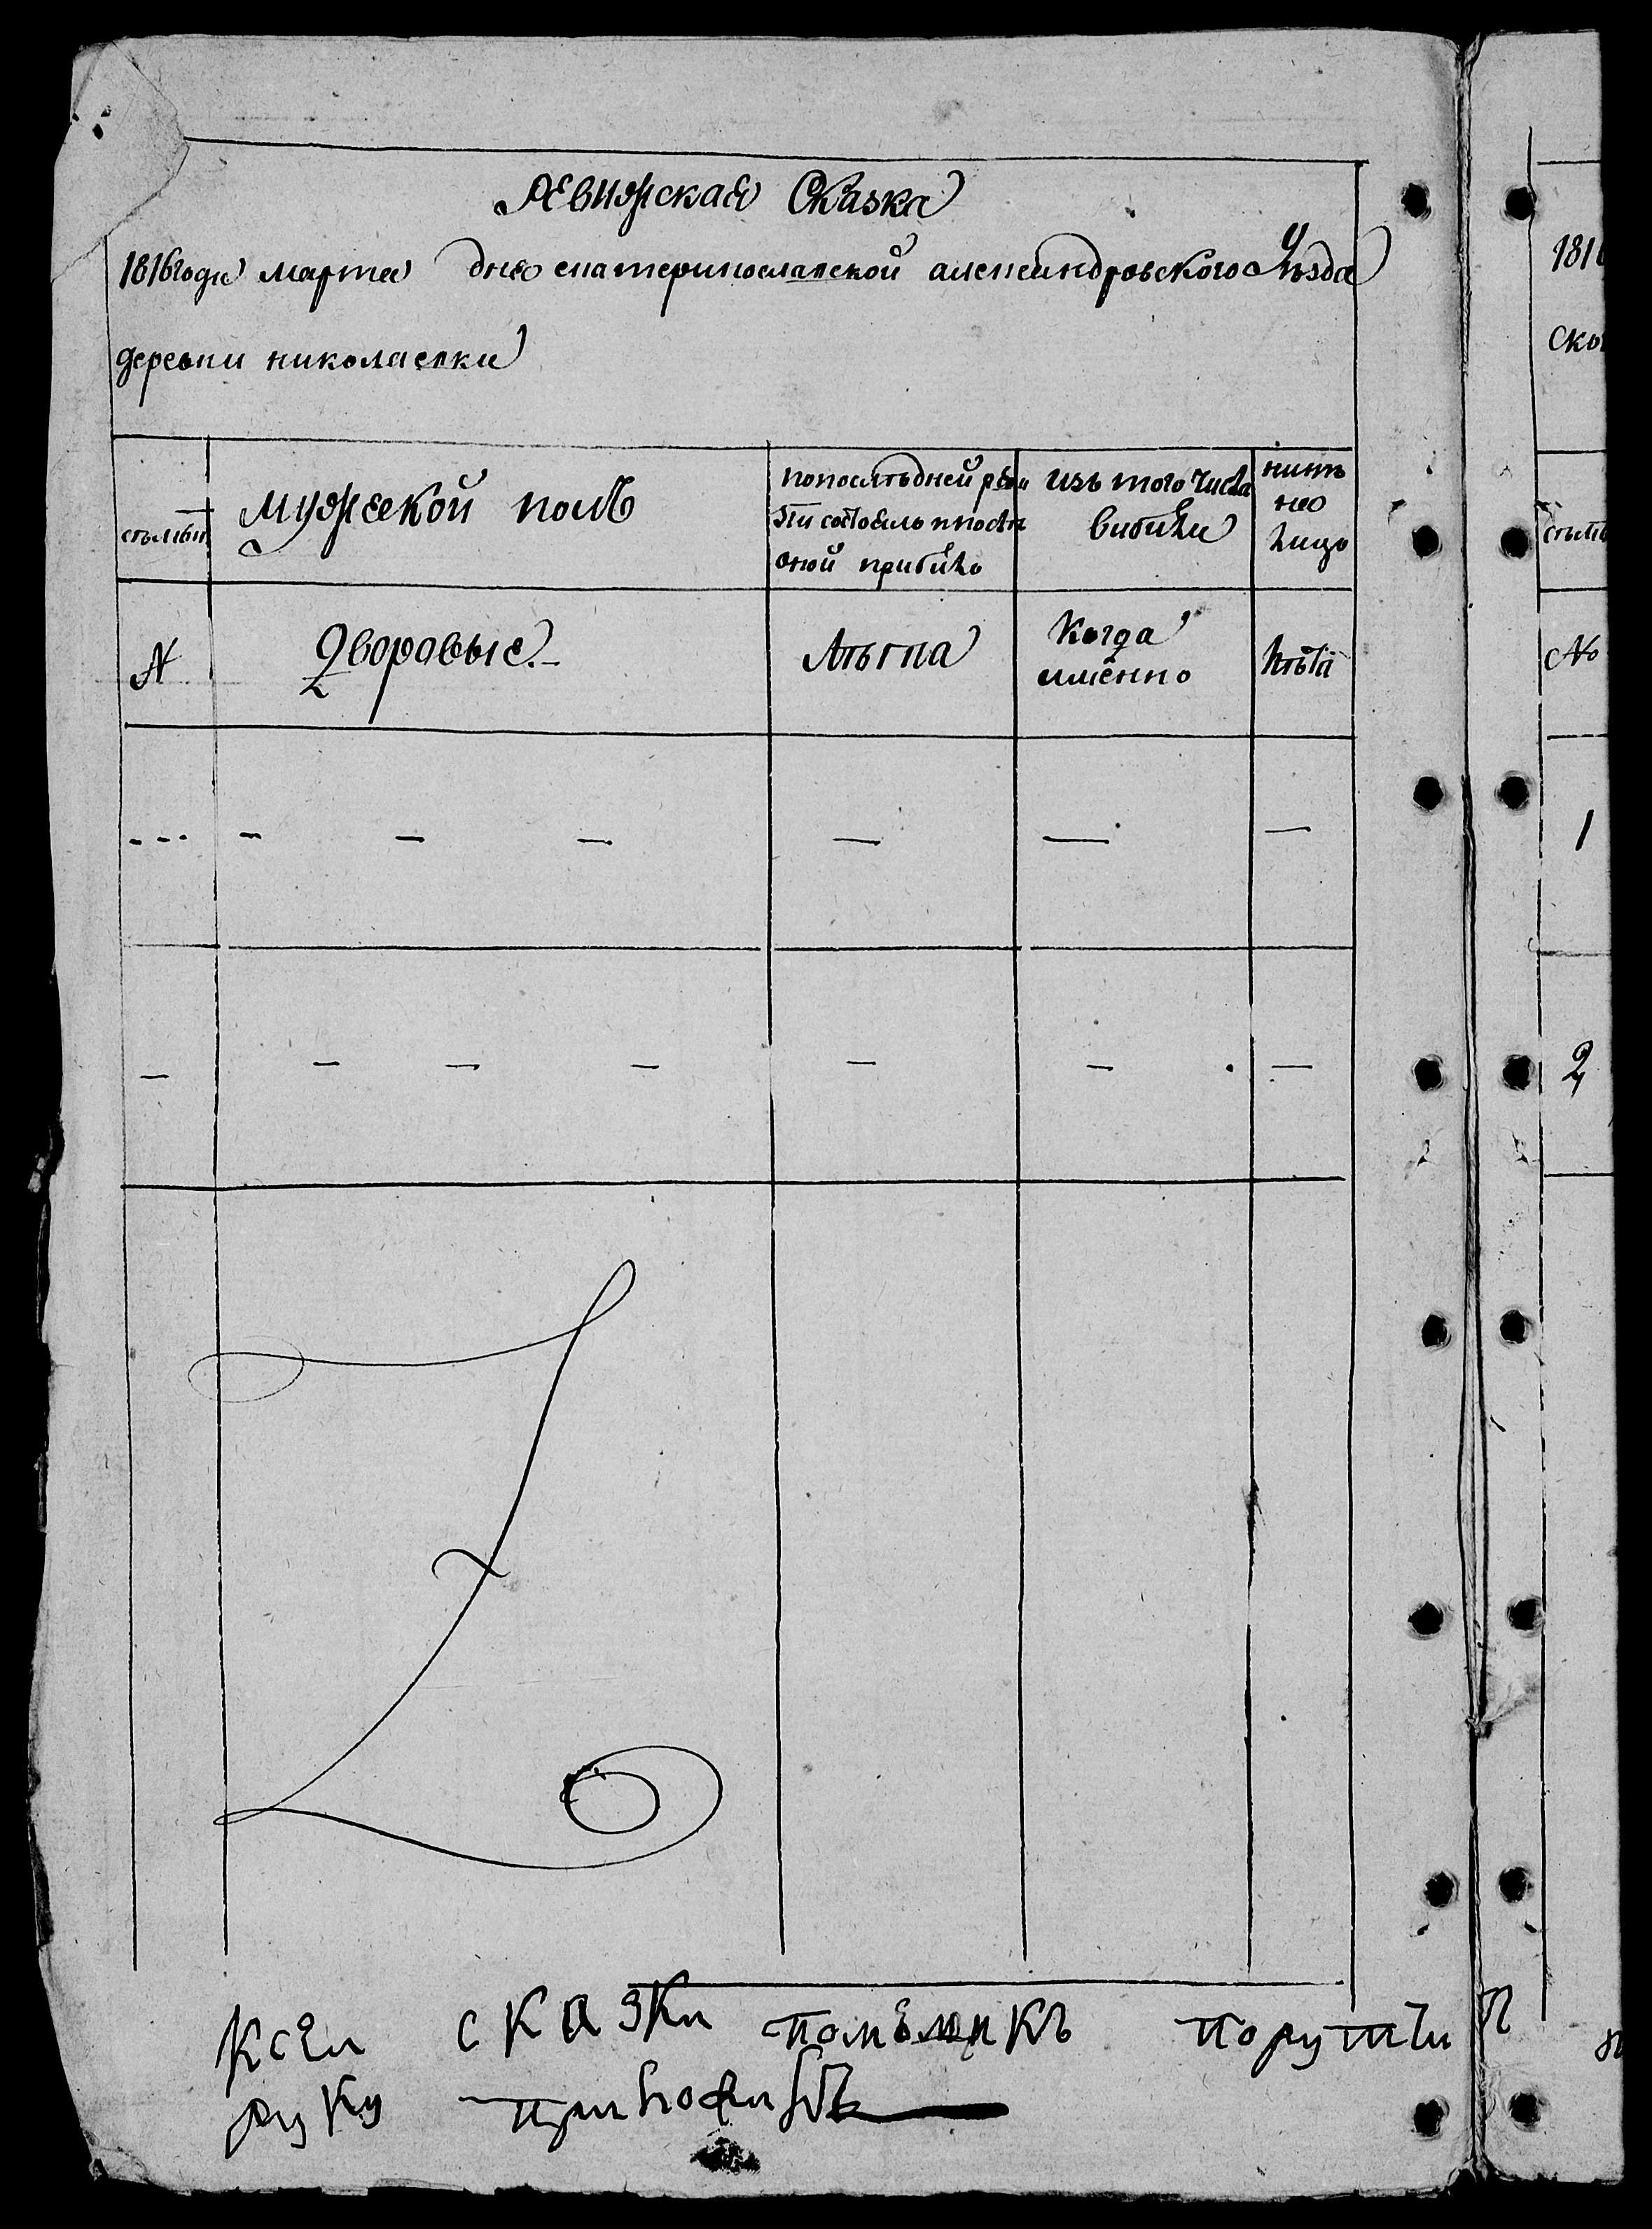 Ревижская Сказка
1816 года марта дня екатеринославской александровского уѣзда
деревни николаевки
мужеской полъ
попослѣдней реви
зіи состояло и после
оной прибыло
изъ того числа
выбыли
нынѣ
на
лицо
№
Дворовые.
Лѣта
Когда
имѣнно
Лѣта
1816
ско
№
1
2
Ксеи сказки помѣщикъ поручи
руку приложилъ